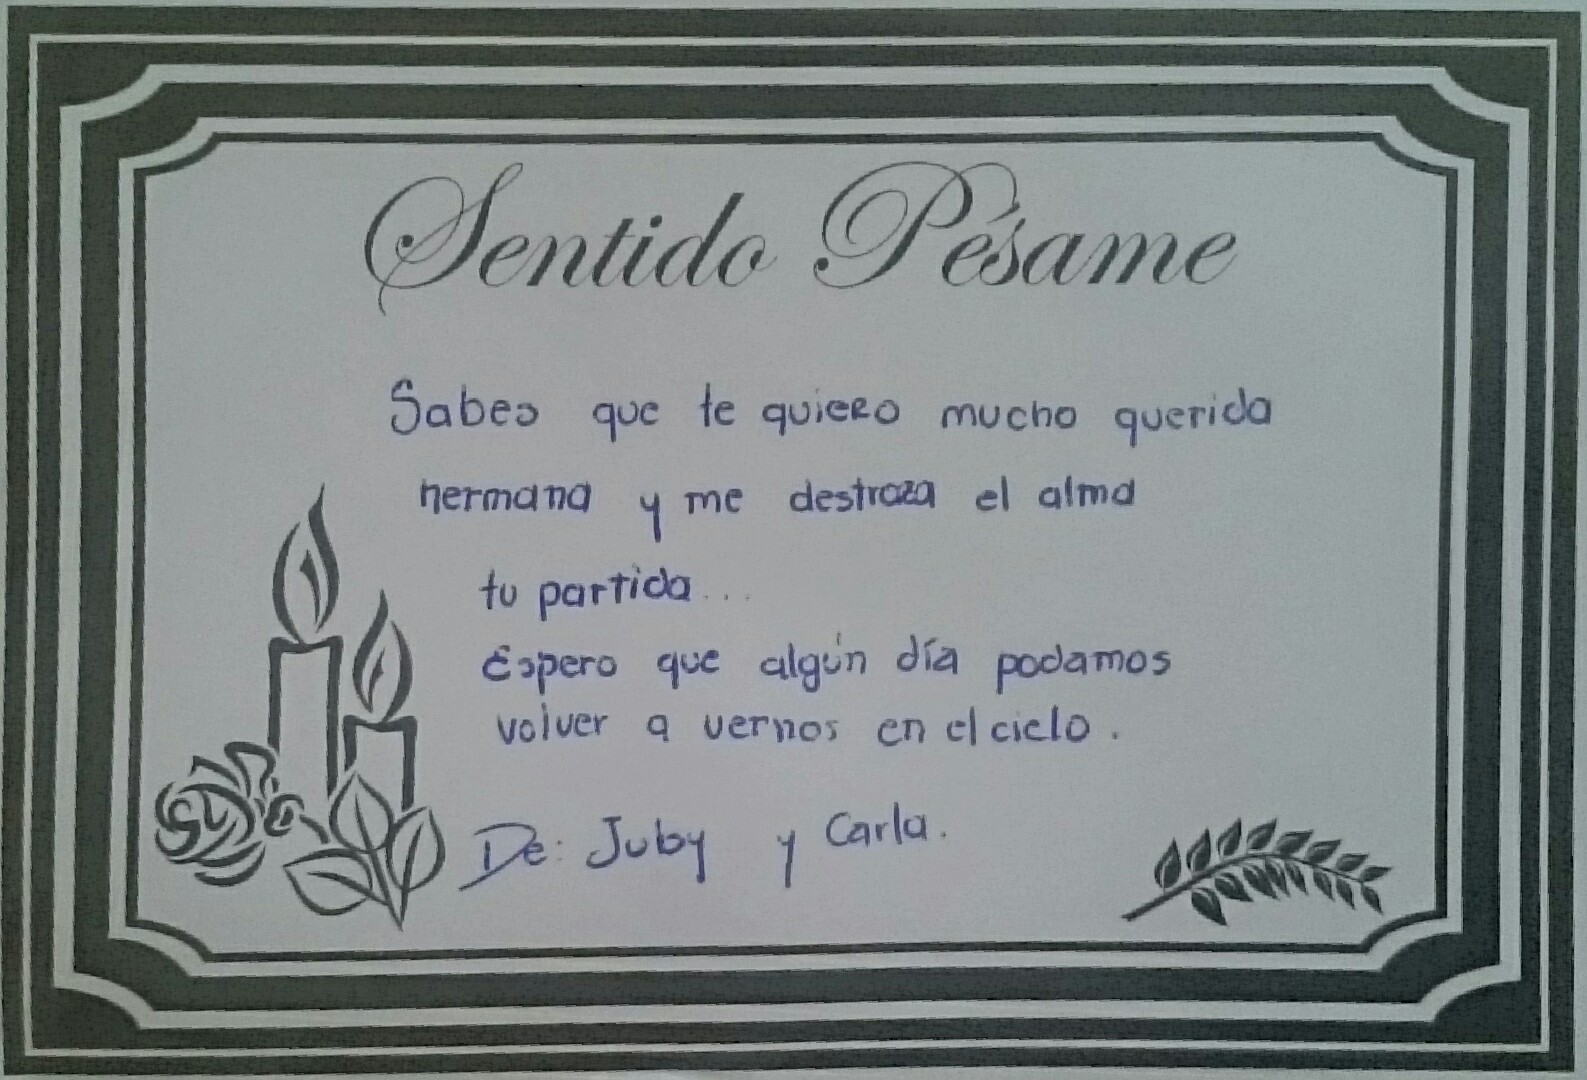 Sentido Pésame
Sabes que te quiero mucho querida
hermana y me destroza el alma
tu partida...
Espero que algún día podamos
volver a vernos en el cielo.
De: Juby y Carla.